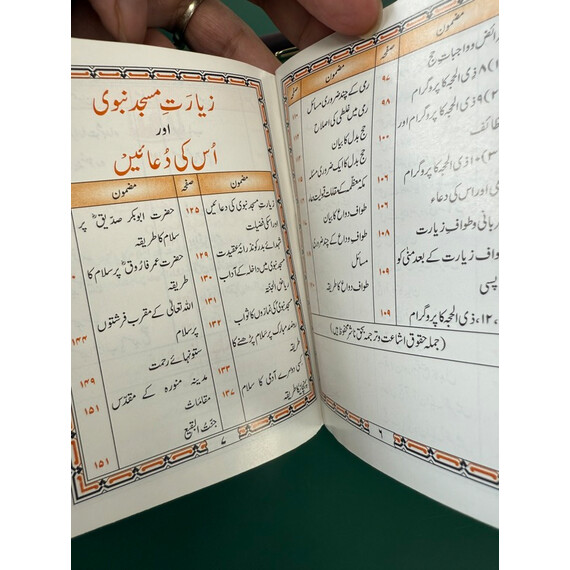 مضمون
ائض و واجباتِ حج
۸ ذی الحجہ کا پروگرام
۹ ذی الحجہ کا پروگرام اور
ظائف
۱۰ ذی الحجہ کا پروگرام
ی اور اس کی دعاء
ربانی و طوافِ زیارت
واف زیارت کے بعد منیٰ کو
پسی
۱۲، ذی الحجہ کا پروگرام
صفحہ
۹۷
۹۸
۱۰۰
۱۰۶
۱۰۶
۱۰۷
۱۰۸
۱۰۹
۱۰۹
مضمون
رمی کے چند ضروری مسائل
رمی میں غلطی کی اصلاح
حج بدل کا بیان
حج بدل کا ایک ضروری مسئلہ
طواف وداع کا بیان
طوافِ وداع کے چند ضروری
مسائل
طواف وداع کا طریقہ
صفحہ
(جملہ حقوق اشاعت و ترجمہ بحق ناشر محفوظ ہیں)
۶
زیارتِ مسجد نبوی
اور
اُس کی دُعائیں
مضمون
زیارتِ مسجد نبوی کی دعائیں
اور اسکی فضیلت
شہدائے بدر کو نذرانۂ عقیدت
مسجد نبوی میں داخلہ کے آداب
ریاض الجنۃ
مسجد نبوی کی نمازوں کا ثواب
روضہ مبارک پر سلام پڑھنے کا
طریقہ
کسی دوسرے آدمی کا سلام
پہنچانے کا طریقہ
صفحہ
۱۲۵
۱۲۹
۱۳۰
۱۳۱
۱۳۲
۱۳۳
۱۳۷
مضمون
حضرت ابوبکر صدیقؓ پر
سلام کا طریقہ
حضرت عمر فاروقؓ پر سلام کا
طریقہ
اللہ تعالیٰ کے مقرب فرشتوں
پر سلام
ستونہائے رحمت
مدینہ منورہ کے مقدس
مقامات
جنت البقیع
۱۴۴
۱۴۹
۱۵۱
۱۵۱
۷